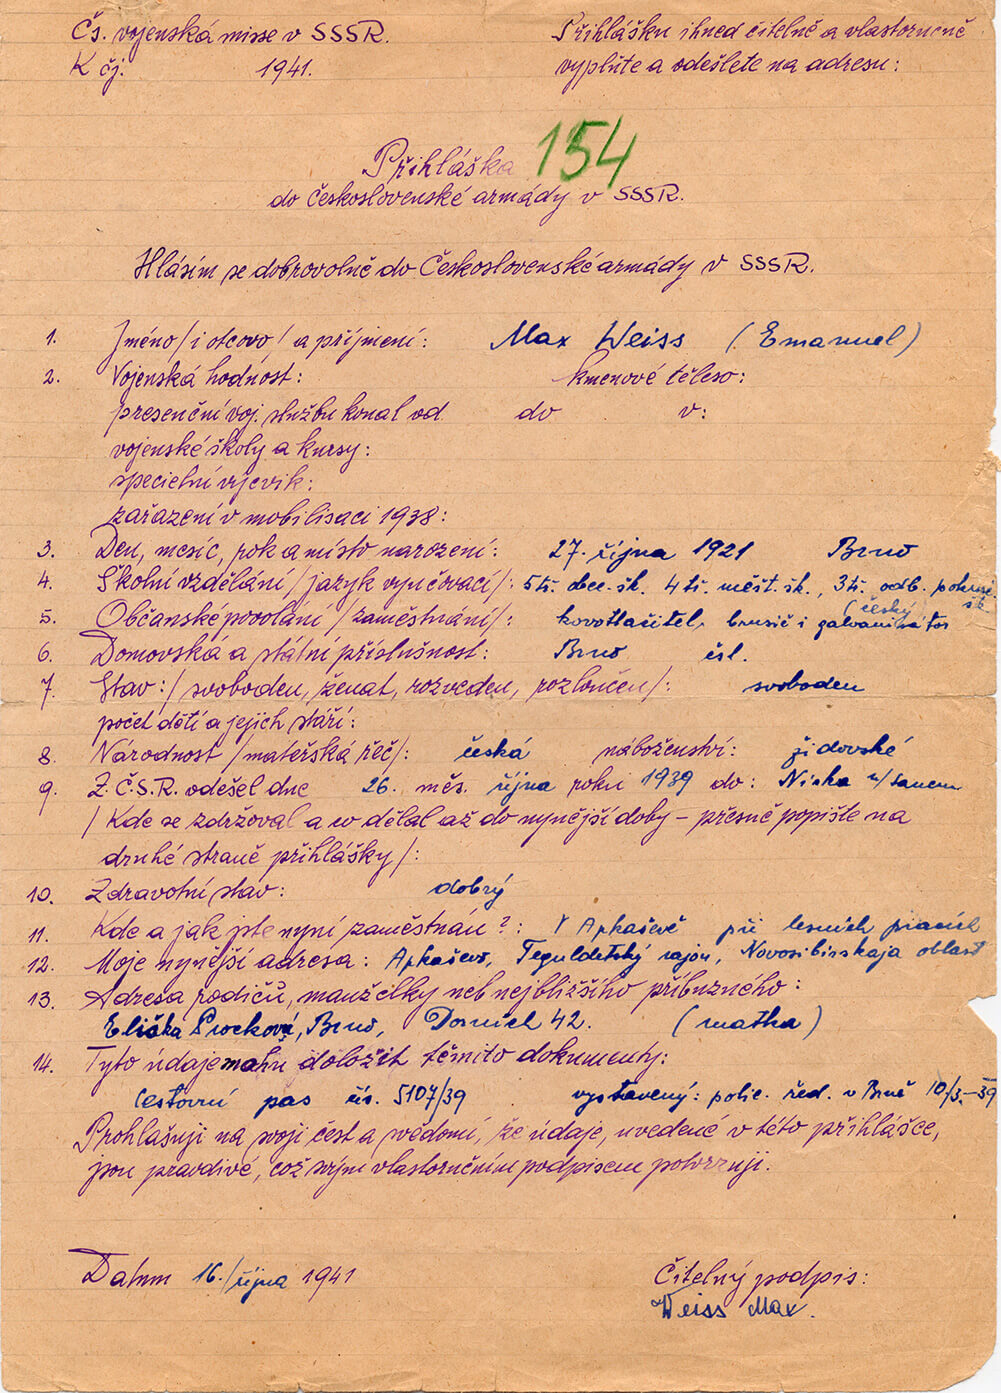 Čs. vojenská misse v SSSR.
Přihlášku ihned čitelně a vlastoručně
K čj. 1941.
vyplňte a odešlete na adresu:
154
Přihláška
do Československé armády v SSSR.
Hlásím se dobrovolně do Československé armády v SSSR.
1. Jméno /i otcovo/ a příjmení: Max Weiss (Emanuel)
2. Vojenská hodnost: kmenové těleso:
presenční voj. službu konal od do v:
vojenské školy a kursy:
specielní výcvik:
zařazení v mobilisaci 1938:
3. Den, měsíc, rok a místo narození: 27. října 1921 Brno
4. Školní vzdělání /jazyk vyučovací/: 5 tř. obec. šk. 4 tř. měšť. šk., 3 tř. odb. pokrač. šk.
(český)
5. Občanské povolání /zaměstnání/: kovotlačitel, brusič i galvanisátor
6. Domovská a státní příslušnost: Brno čsl.
7. Stav: /svoboden, ženat, rozveden, rozloučen/: svoboden
počet dětí a jejich stáří:
8. Národnost /mateřská řeč/: česká náboženství: židovské
9. Z Č.S.R. odešel dne 26. měs. října roku 1939 do: Niska n/Sanem
/Kde se zdržoval a co dělal až do nynější doby – přesně popište na
druhé straně přihlášky/:
10. Zdravotní stav: dobrý
11. Kde a jak jste nyní zaměstnán?: V Apkaševě při lesních pracích
12. Moje nynější adresa: Apkaševo, Teguldetský rajon, Novosibirskaja oblast
13. Adresa rodičů, manželky neb nejbližšího příbuzného:
Eliška Procková, Brno, Dornich 42. (matka)
14. Tyto údaje mohu doložit těmito dokumenty:
Cestovní pas čís. 5107/39 vystavený: polic. řed. v Brně 10/3.–39
Prohlašuji na svoji čest a vědomí, že údaje, uvedené v této přihlášce,
jsou pravdivé, což svým vlastoručním podpisem potvrzuji.
Datum 16./října 1941
Čitelný podpis:
Weiss Max.